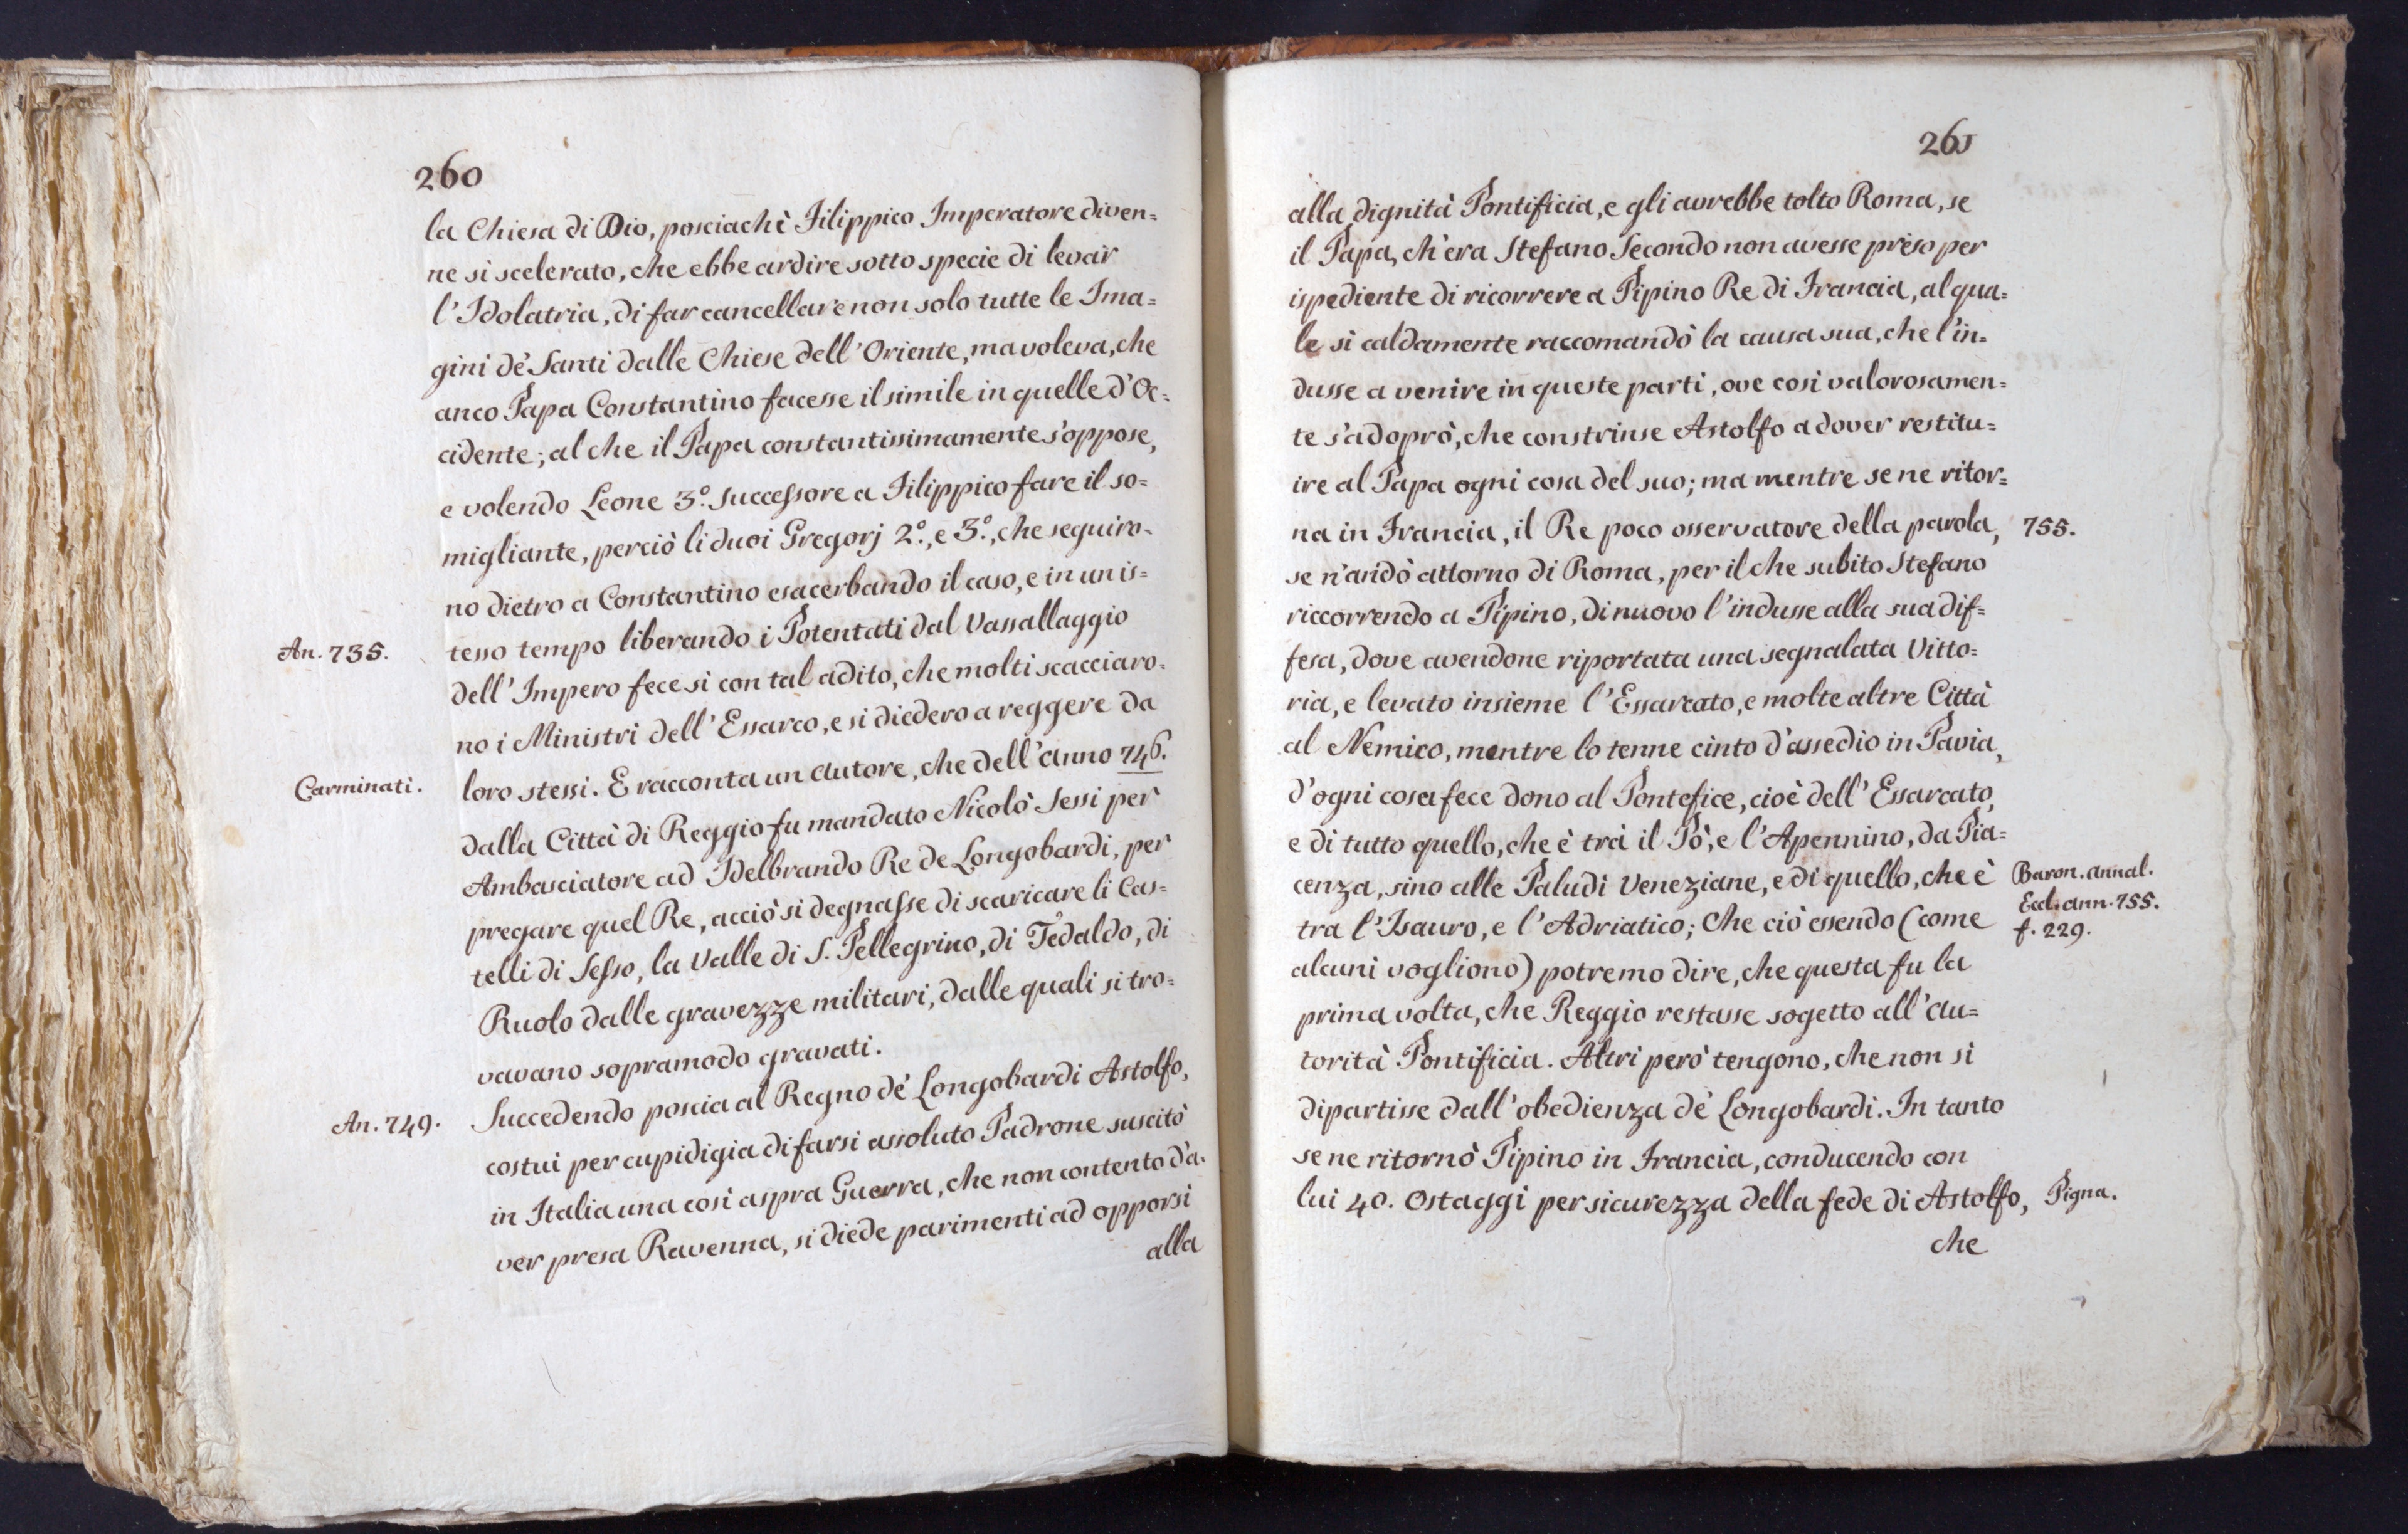 260
la Chiesa di Dio, posciachè Filippico Imperatore diven=
ne si scelerato, che ebbe ardire sotto specie di levar
l'Idolatria, di far cancellare non solo tutte le Ima=
gini de' Santi dalle Chiese dell'Oriente, ma voleva, che
anco Papa Constantino facesse il simile in quelle d'Oc=
cidente; al che il Papa constantissimamente s'oppose,
e volendo Leone 3.º successore a Filippico fare il so=
migliante, perciò li duoi Gregorj 2.º, e 3.º, che seguiro=
no dietro a Constantino esacerbando il caso, e in un is=
An. 735. tesso tempo liberando i Potentati dal Vassallaggio
dell'Impero fece si con tal adito, che molti scacciaro=
no i Ministri dell'Essarco, e si diedero a reggere da
Carminati. loro stessi. E racconta un autore, che dell'anno 746.
dalla Città di Reggio fu mandato Nicolò Sessi per
Ambasciatore ad Idelbrando Re de Longobardi, per
pregare quel Re, acciò si degnasse di scaricare li Cas=
telli di Sesso, la Valle di S. Pellegrino, di Tedaldo, di
Ruolo dalle gravezze militari, dalle quali si tro=
vavano sopramodo gravati.
An. 749. Succedendo poscia al Regno de' Longobardi Astolfo,
costui per cupidigia di farsi assoluto Padrone suscitò
in Italia una così aspra Guerra, che non contento d'a=
ver presa Ravenna, si diede parimenti ad opporsi
alla
261
alla dignità Pontificia, e gli avrebbe tolto Roma, se
il Papa, ch'era Stefano Secondo non avesse preso per
ispediente di ricorrere a Pipino Re di Francia, al qua=
le sì caldamente raccomandò la causa sua, che l'in=
dusse a venire in queste parti, ove così valorosamen=
te s'adoprò, che constrinse Astolfo a dover restitu=
ire al Papa ogni cosa del suo; ma mentre se ne ritor=
na in Francia, il Re poco osservatore della parola, 755.
se n'andò attorno di Roma, per il che subito Stefano
riccorrendo a Pipino, di nuovo l'indusse alla sua dif=
fesa, dove avendone riportata una segnalata Vitto=
ria, e levato insieme l'Essarcato, e molte altre Città
al Nemico, mentre lo tenne cinto d'assedio in Pavia,
d'ogni cosa fece dono al Pontefice, cioè dell'Essarcato,
e di tutto quello, che è trà il Pò, e l'Apennino, da Pia=
cenza, sino alle Paludi Veneziane, e di quello, che è Baron. annal.
Eccl. ann. 755.
tra l'Isauro, e l'Adriatico; Che ciò essendo (come f. 229.
alcuni vogliono) potremo dire, che questa fu la
prima volta, che Reggio restasse sogetto all'au=
torità Pontificia. Altri però tengono, che non si
dipartisse dall'obedienza de' Longobardi. In tanto
se ne ritornò Pipino in Francia, conducendo con
lui 40. Ostaggi per sicurezza della fede di Astolfo, Pigna.
che